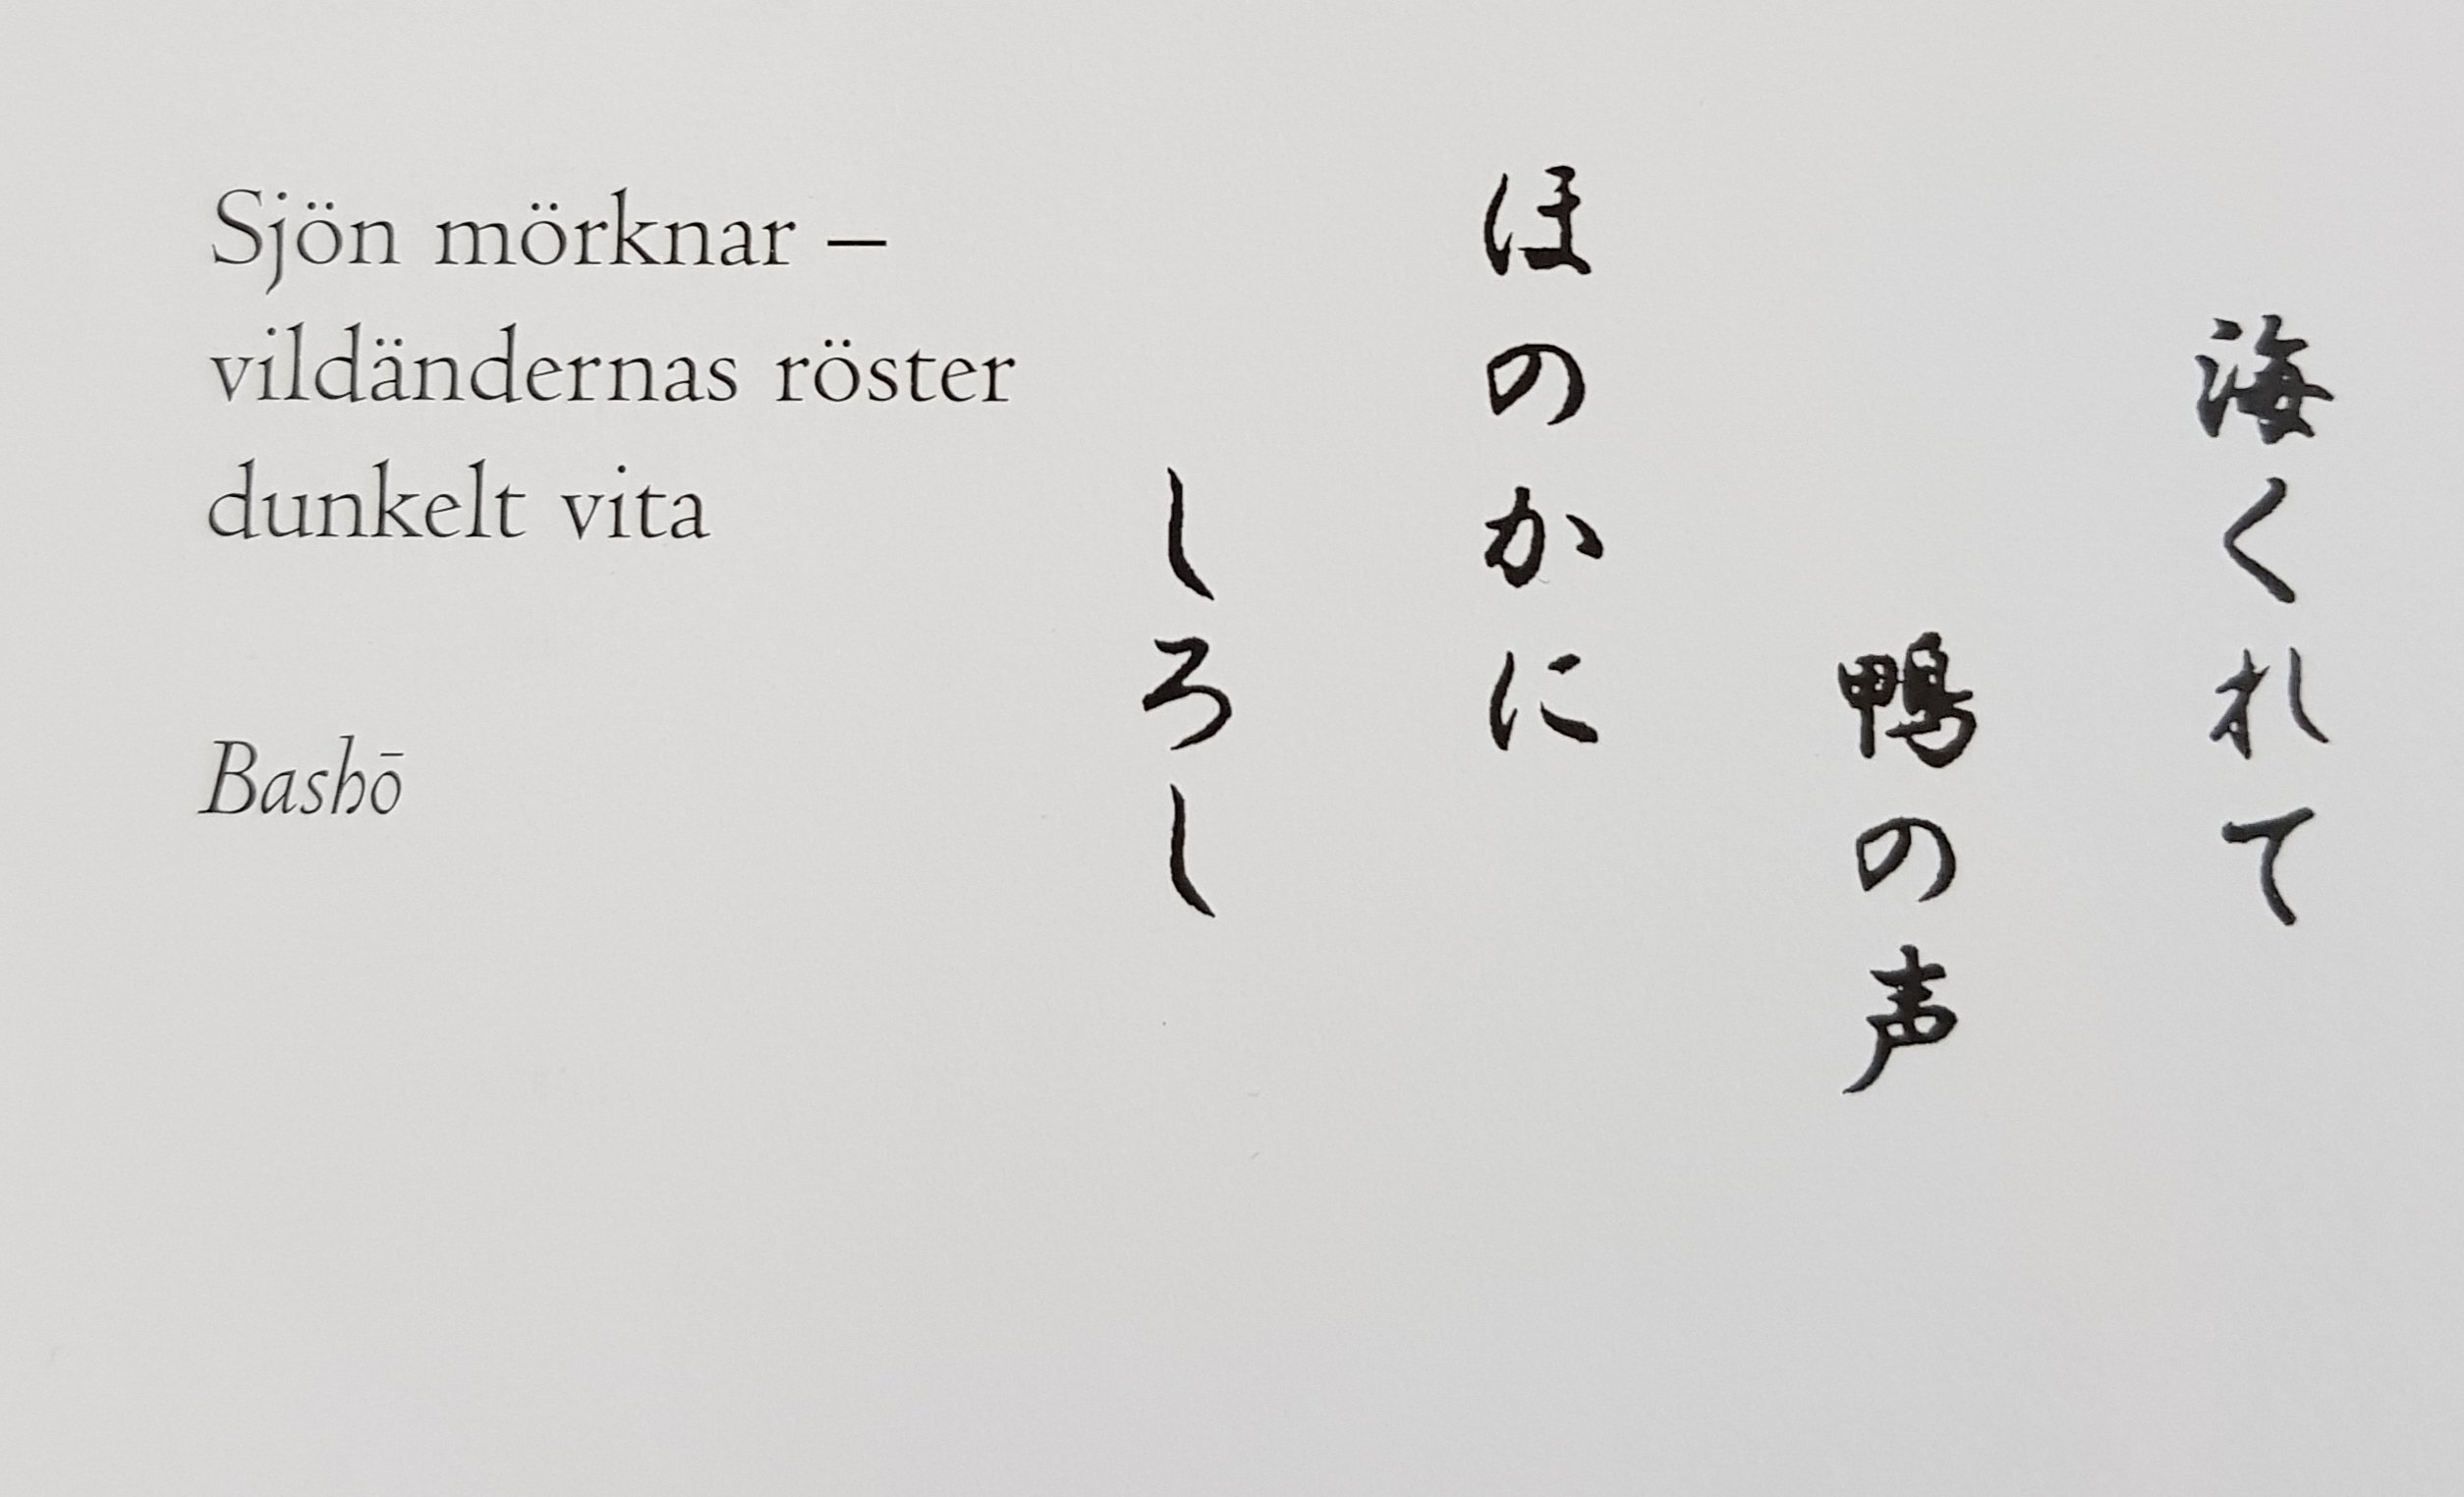 Sjön mörknar –
vildändernas röster
dunkelt vita
Bashō
海くれて
鴨の声
ほのかに
しろし